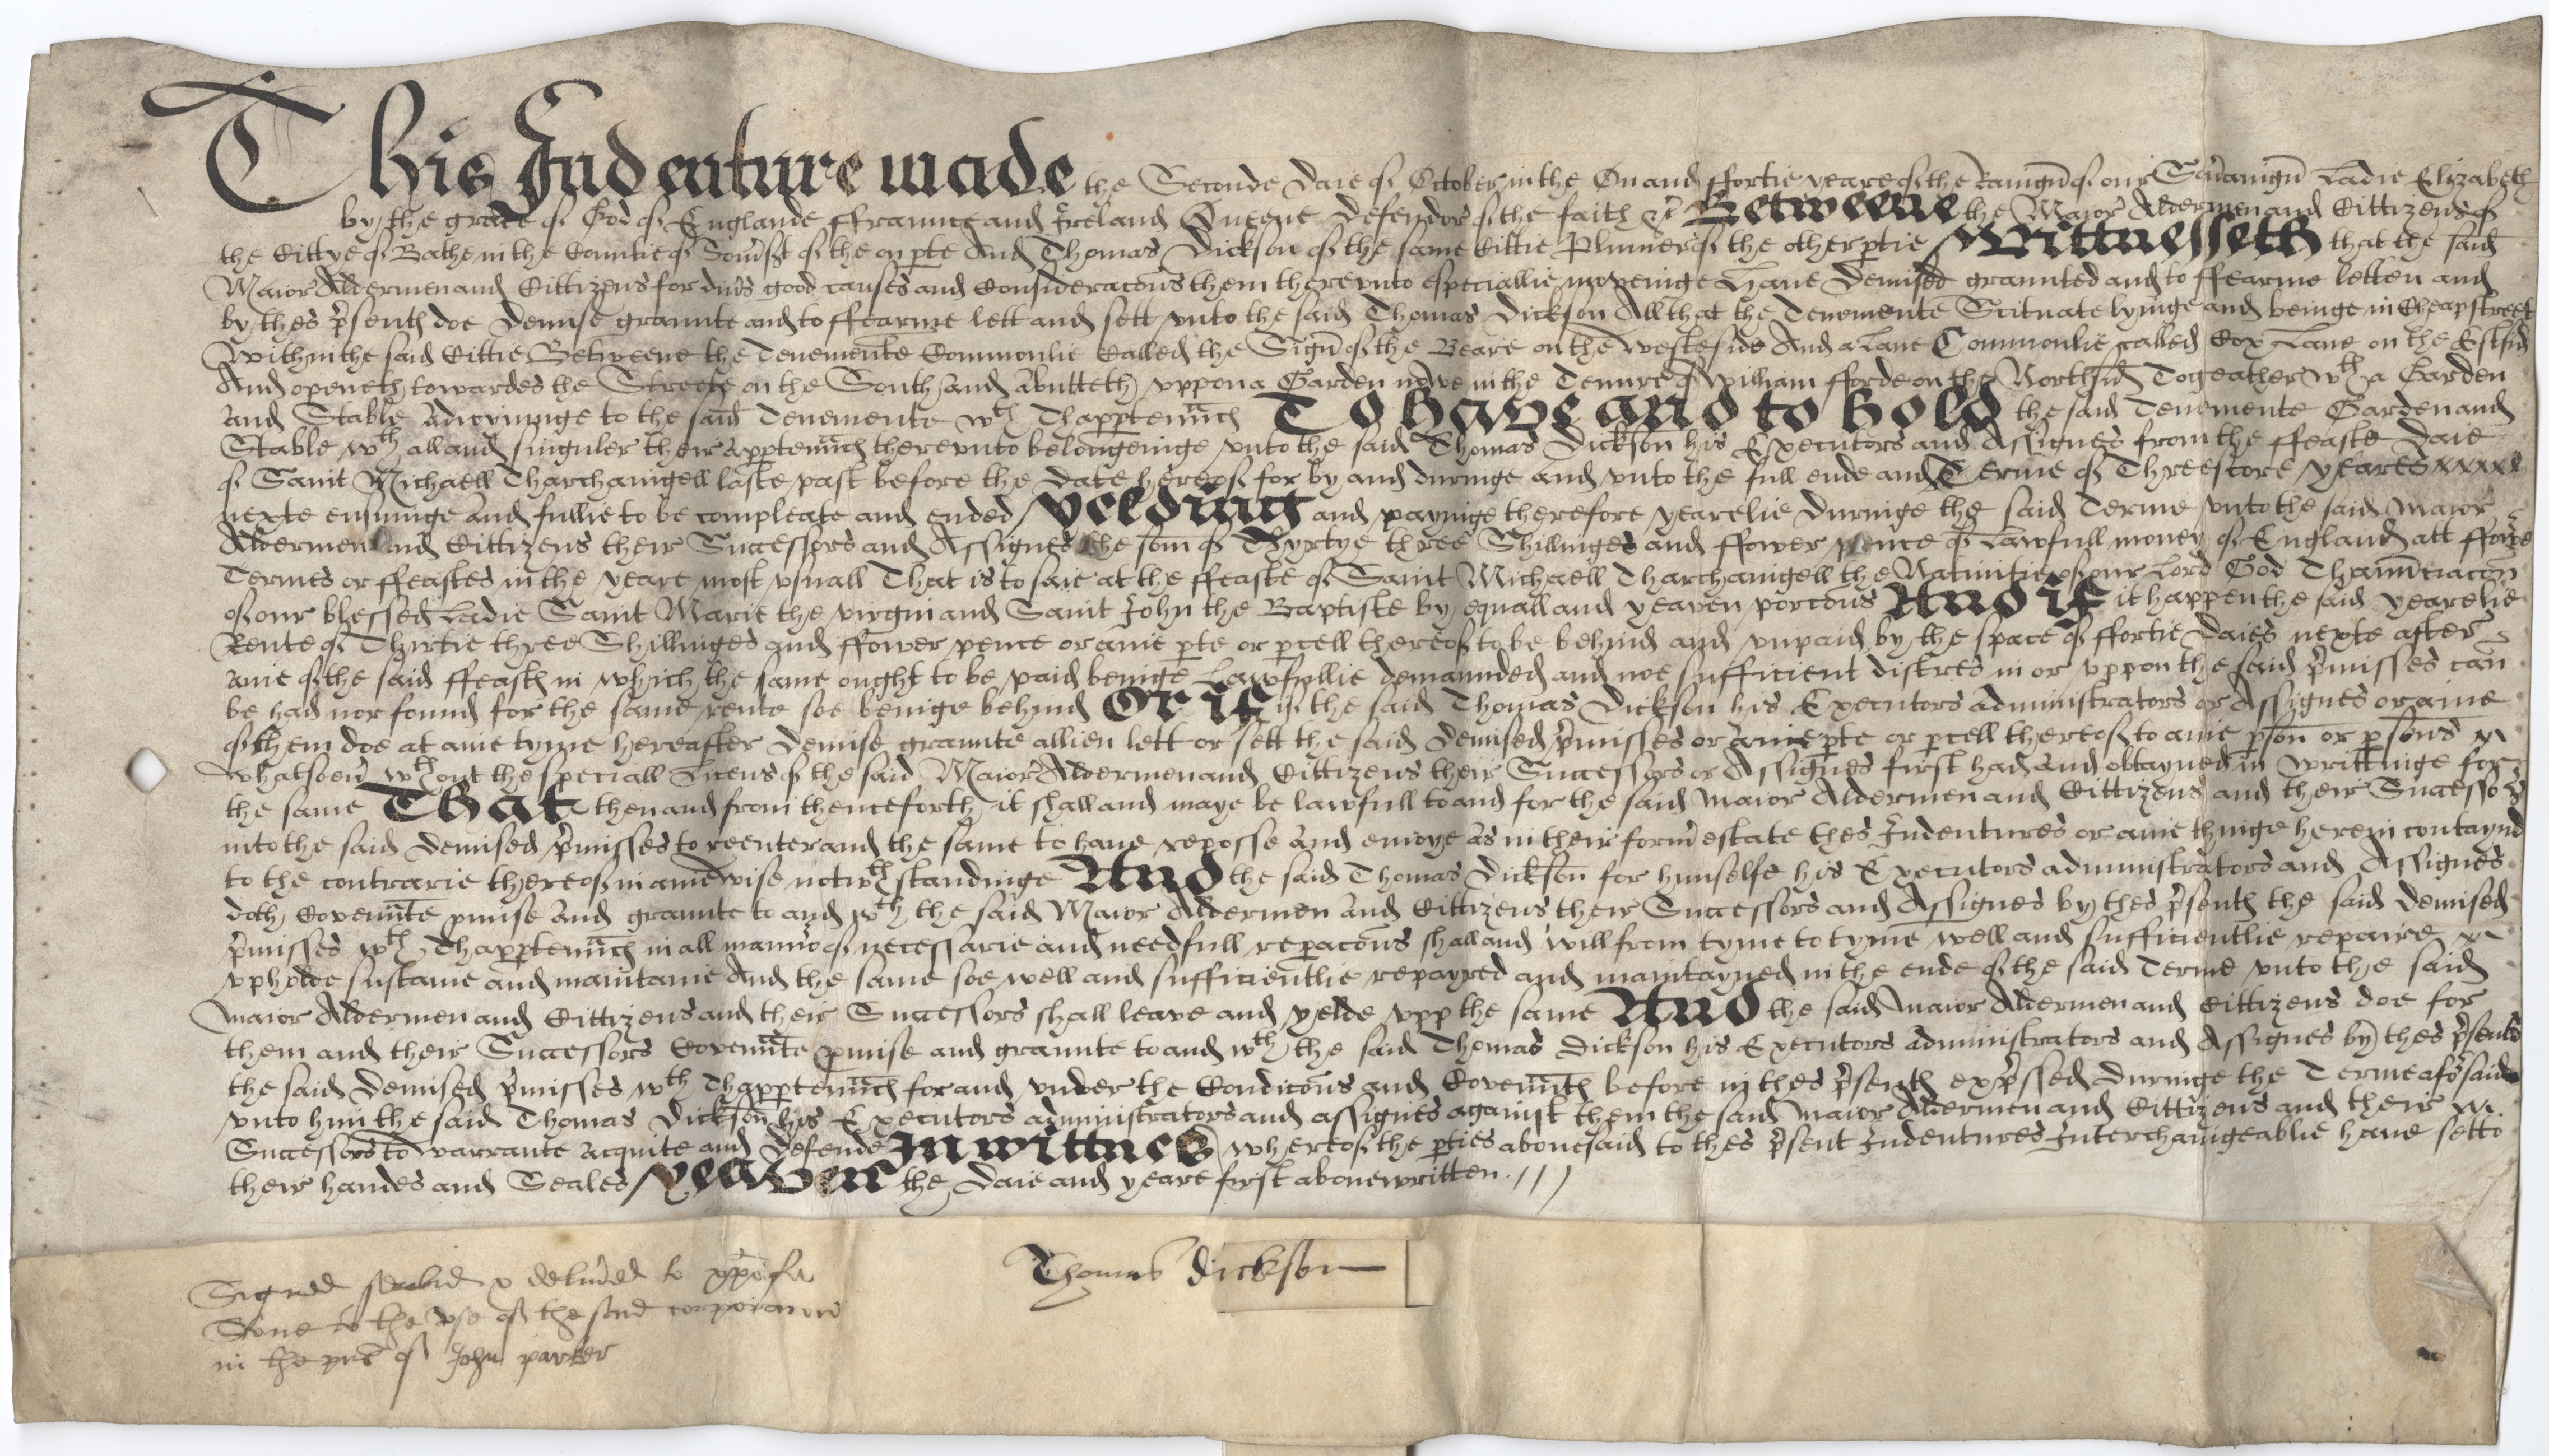 This Indenture made the Seconde Daie of October in the On and ffortie yeare of the Raingn̄ of our Sov'aingn̄ Ladie Elizabeth
by the grace of God of Englande ffraunce and Ireland Queene Defendor of the faith &c Betweene the Maior Aldermen and Cittizens of
the Cittye of Bathe in the Countie of Som'st of the on pte And Thomas Dickson of the same Cittie Plumer of the other ptie Wittnesseth that the said
Maior Aldermen and Cittizens for div's good causes and Consideracōns them therevnto especiallie movenige Have Demised graunted and to ffearme letten and
by thes p'sents doe Demise graunte and to ffearme lett and sett vnto the said Thomas Dickson All that the Tenemente Scituate lyinge and beinge in Cheapstreet
Within the said Cittie Betweene the Tenemente Commonlie Called the Sign̄ of the Beare on the westeside And a Lane Commonlie called Cox Lane on the Estsid
And openeth towardes the Streete on the South and abutteth vppon a Garden nowe in the Tenure of William fforde on the Northsid Togeather wth a Garden
and Stable Adioyninge to the said Tenemente wth Thapptenn̄cs To Have and to Hold the said Tenemente Garden and
Stable wth all and singuler their apptenn̄cs therevnto belongeinge vnto the said Thomas Dickson his Executors and Assignes from the ffeaste Daie
of Saint Michaell Tharchanigell laste past before the Date hereof for by and duringe and vnto the full ende and Terme of Threescore yeares xxxxx
nexte ensuinge and fullie to be compleate and ended Yelding and payinge therefore yearelie Duringe the said Terme vnto the said Maior
Aldermen and Cittizens their Successors and Assignes the som̄ of Thyrtye three Shillinges and ffower pence of Lawfull money of England att ffowre
Termes or ffeastes in the yeare most vsuall That is to saie at the ffeaste of Saint Michaell Tharchanigell the Nativitie of our Lord God Thannuciacon
of our blessed Ladie Saint Marie the virgin and Saint John the Baptiste by equall and yeaven porcōns And if it happen the said yearelie
Rente of Thirtie three Shillinges and ffower pence or anie pte or pcell thereof to be behind and vnpaid by the space of ffortie Daies nexte after
anie of the said ffeasts in which the same ought to be paid beinge Lawfullie demaunded and noe sufficient distres in or vppon the said p'misses can
be had nor found for the same rente soe beinge behind Or if if the said Thomas Dickson his Executors administrators or Assignes or anie
of them doe at anie tyme hereafter Demise graunte allien lett or sett the said Demised p'misses or anie pte or pcell thereof to anie pson̄ or psons
whatsoev' wthout the speciall Licens of the said Maior Aldermen and Cittizens their Successors or Assignes first had and obtayned in writtinge for
the same That then and from thenceforth it shall and maye be lawfull to and for the said Maior Aldermen and Cittizens and their Successors
into the said Demised p'misses to reenter and the same to have reposse and enioye as in their form' estate thes Indentures or anie thinge herein contaynd
to the contrarie thereof in aniewise notwthstandinge And the said Thomas Dickson for himselfe his Executors administrators and Assignes
doth Covenn̄te pmise and graunte to and wth the said Maior Aldermen and Cittizens their Successors and Assignes by thes p'sents the said Demised
p'misses wth Thapptenn̄cs in all mann'o of necessarie and needfull repacōns shall and will from tyme to tyme well and sufficientlie repaire
vpholde sustaine and maintaine And the same soe well and sufficientlie repayred and maintayned in the ende of the said Terme vnto the said
Maior Aldermen and Cittizens and their Successors shall leave and yelde vpp the same And the said Maior Aldermen and Cittizens doe for
them and their Successors Covenn̄te pmise and graunte to and wth the said Thomas Dickson his Executors administrators and Assignes by thes p'sents
the said Demised p'misses wth Thapptenn̄cs for and vnder the Condicōns and Covenn̄ts before in thes p'sents exp'ssed duringe the Terme afo'said
vnto him the said Thomas Dickson his Executors administrators and assignes against them the said Maior Aldermen and Cittizens and their
Successors to warrante acquite and Defende In wittnes whereof the pties abovesaid to thes p'sent Indentures Interchanigeablie have setto
their handes and Seales Yeaven the Daie and yeare first abovewritten
Signed sealed & deliu'ed to
Thomas Dickson
Stone to the vse of the said corporation
in the p'nc of John parker